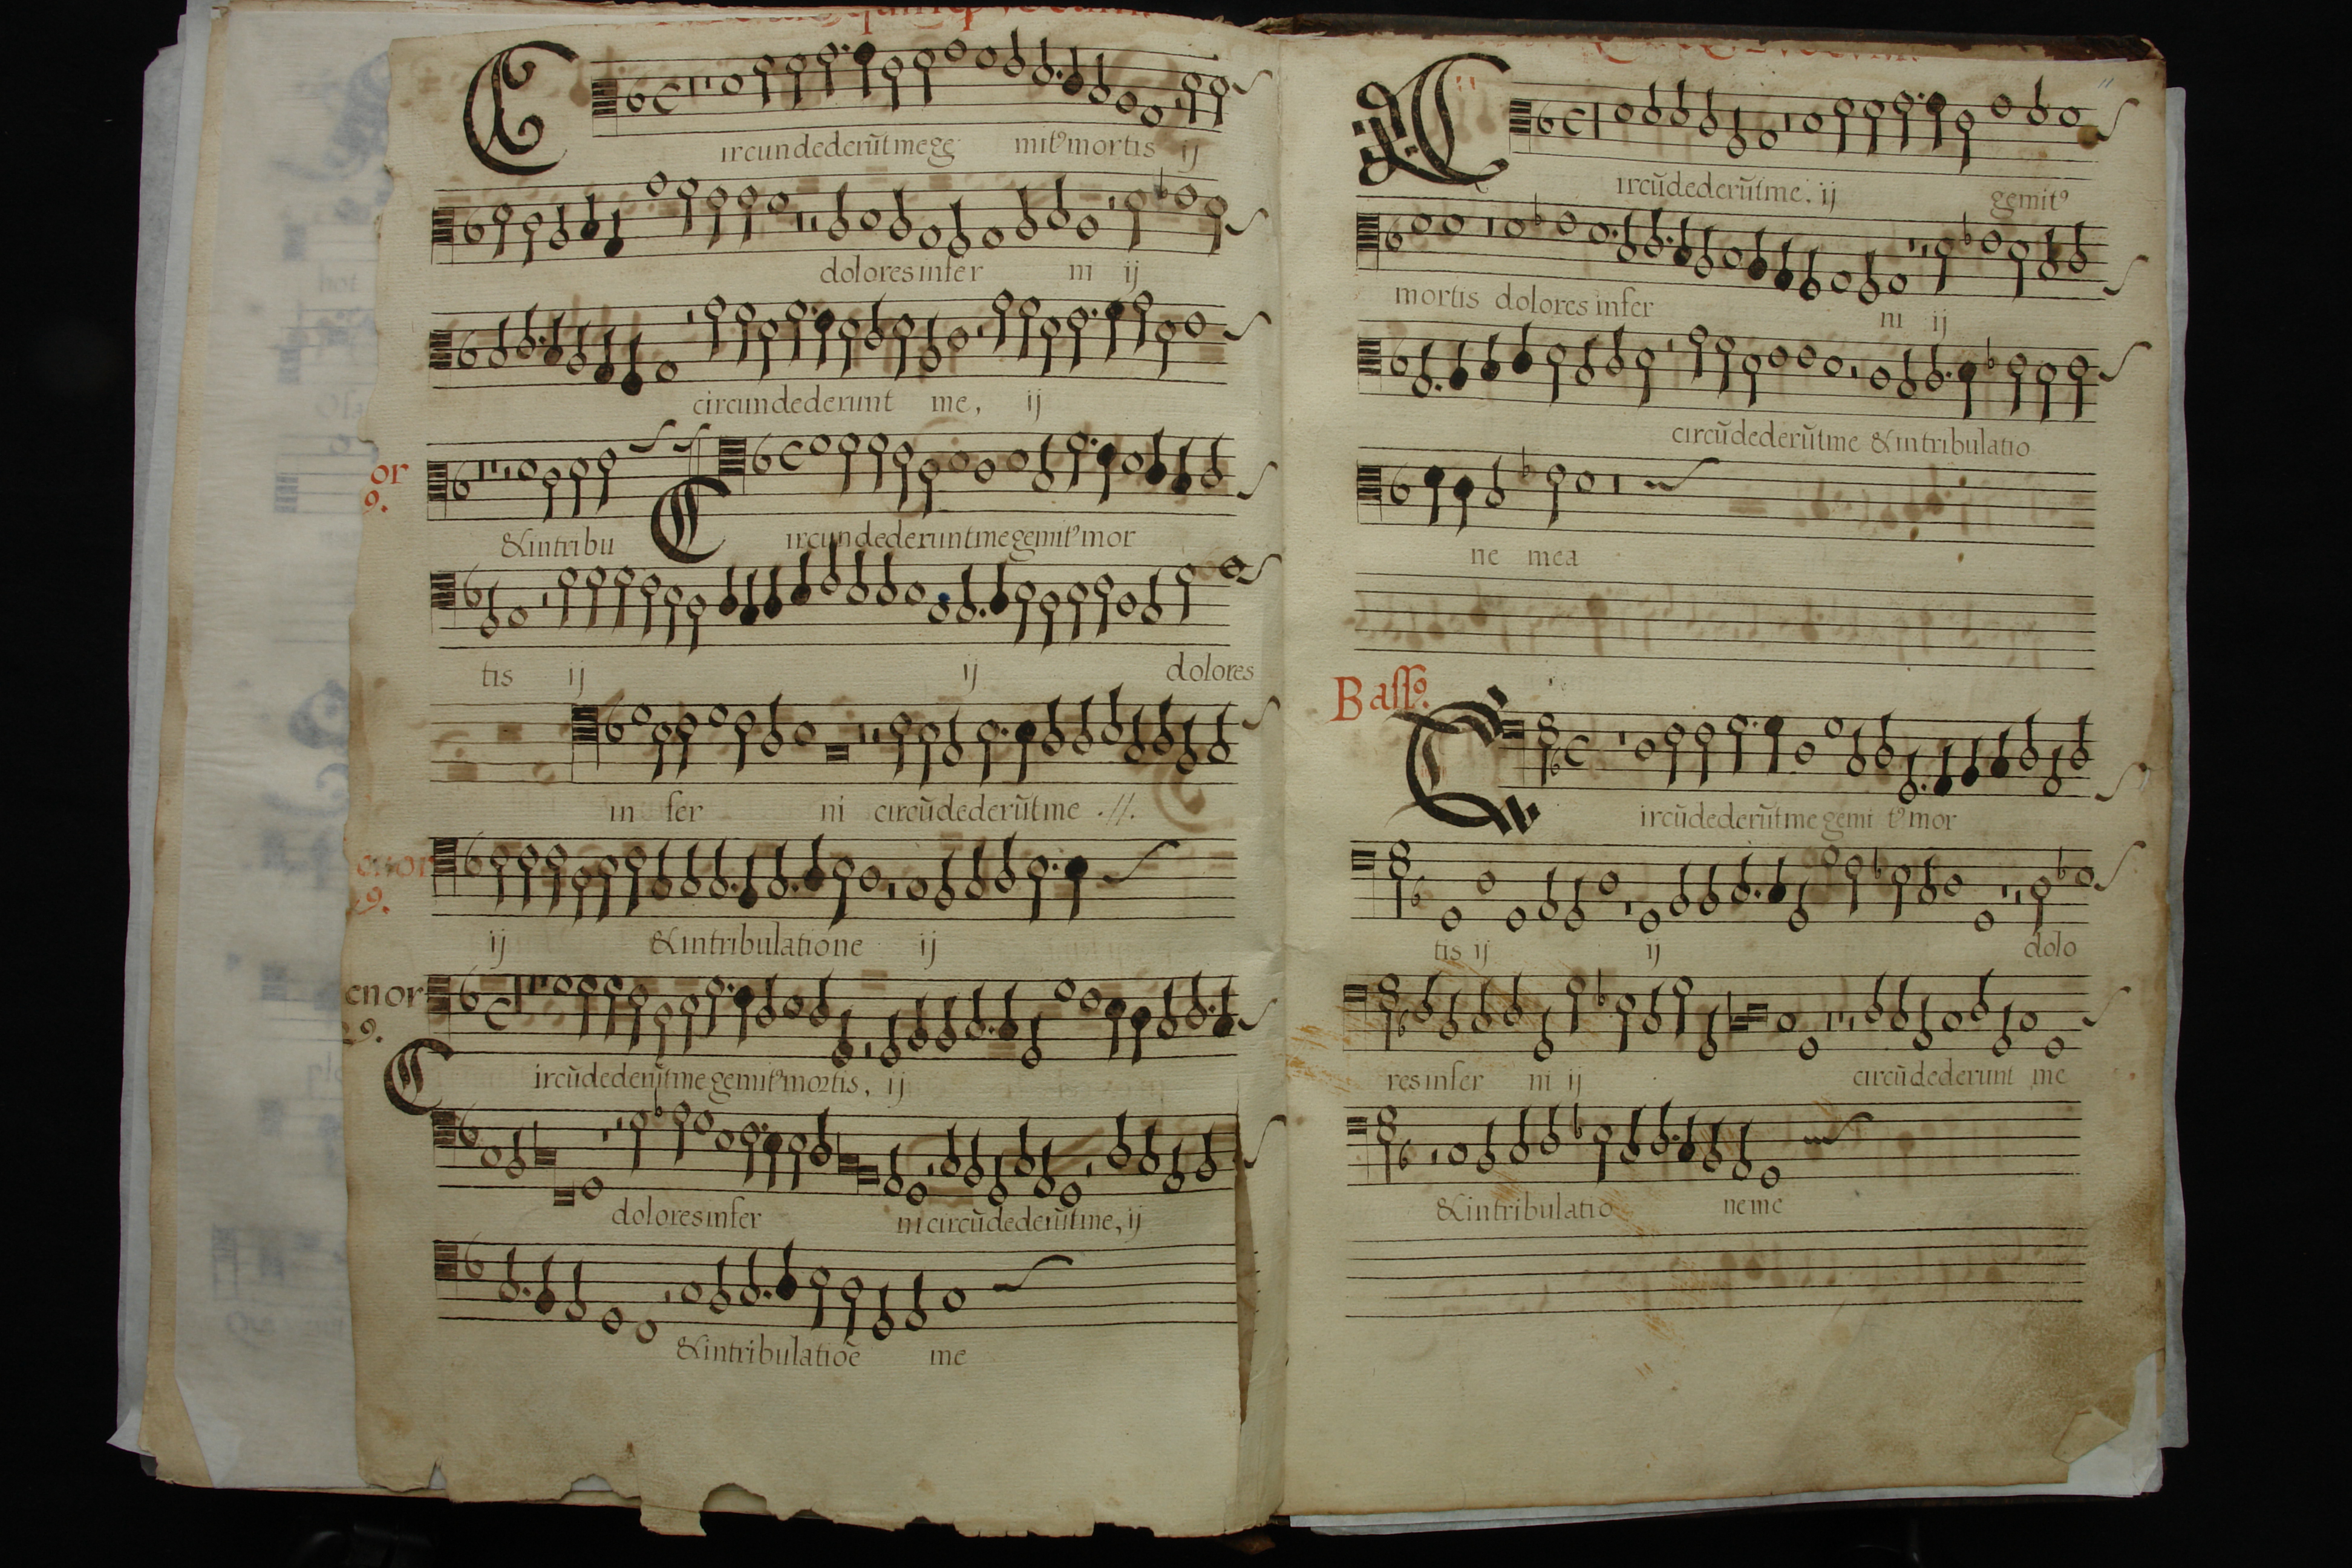 Circundederūt me ge mitꝰ mortis ij
dolores infer ni ij
circundederunt me, ij
or
9.
& in tribu
Circundederunt me gemitꝰ mor
tis ij ij dolores
in fer ni circūdederūt me .//.
ij & in tribulatione ij
enor
9.
Circūdederūt me gemitꝰ mortis, ij
dolores infer ni circūdederūt me, ij
& in tribulatiōe me
Circūdederūt me. ij gemitꝰ
mortis dolores infer ni ij
circūdederūt me & in tribulatio
ne mea
Bassꝰ.
Circūdederūt me gemi tꝰ mor
tis ij ij dolo
res infer ni ij circūdederunt me
& in tribulatio ne me